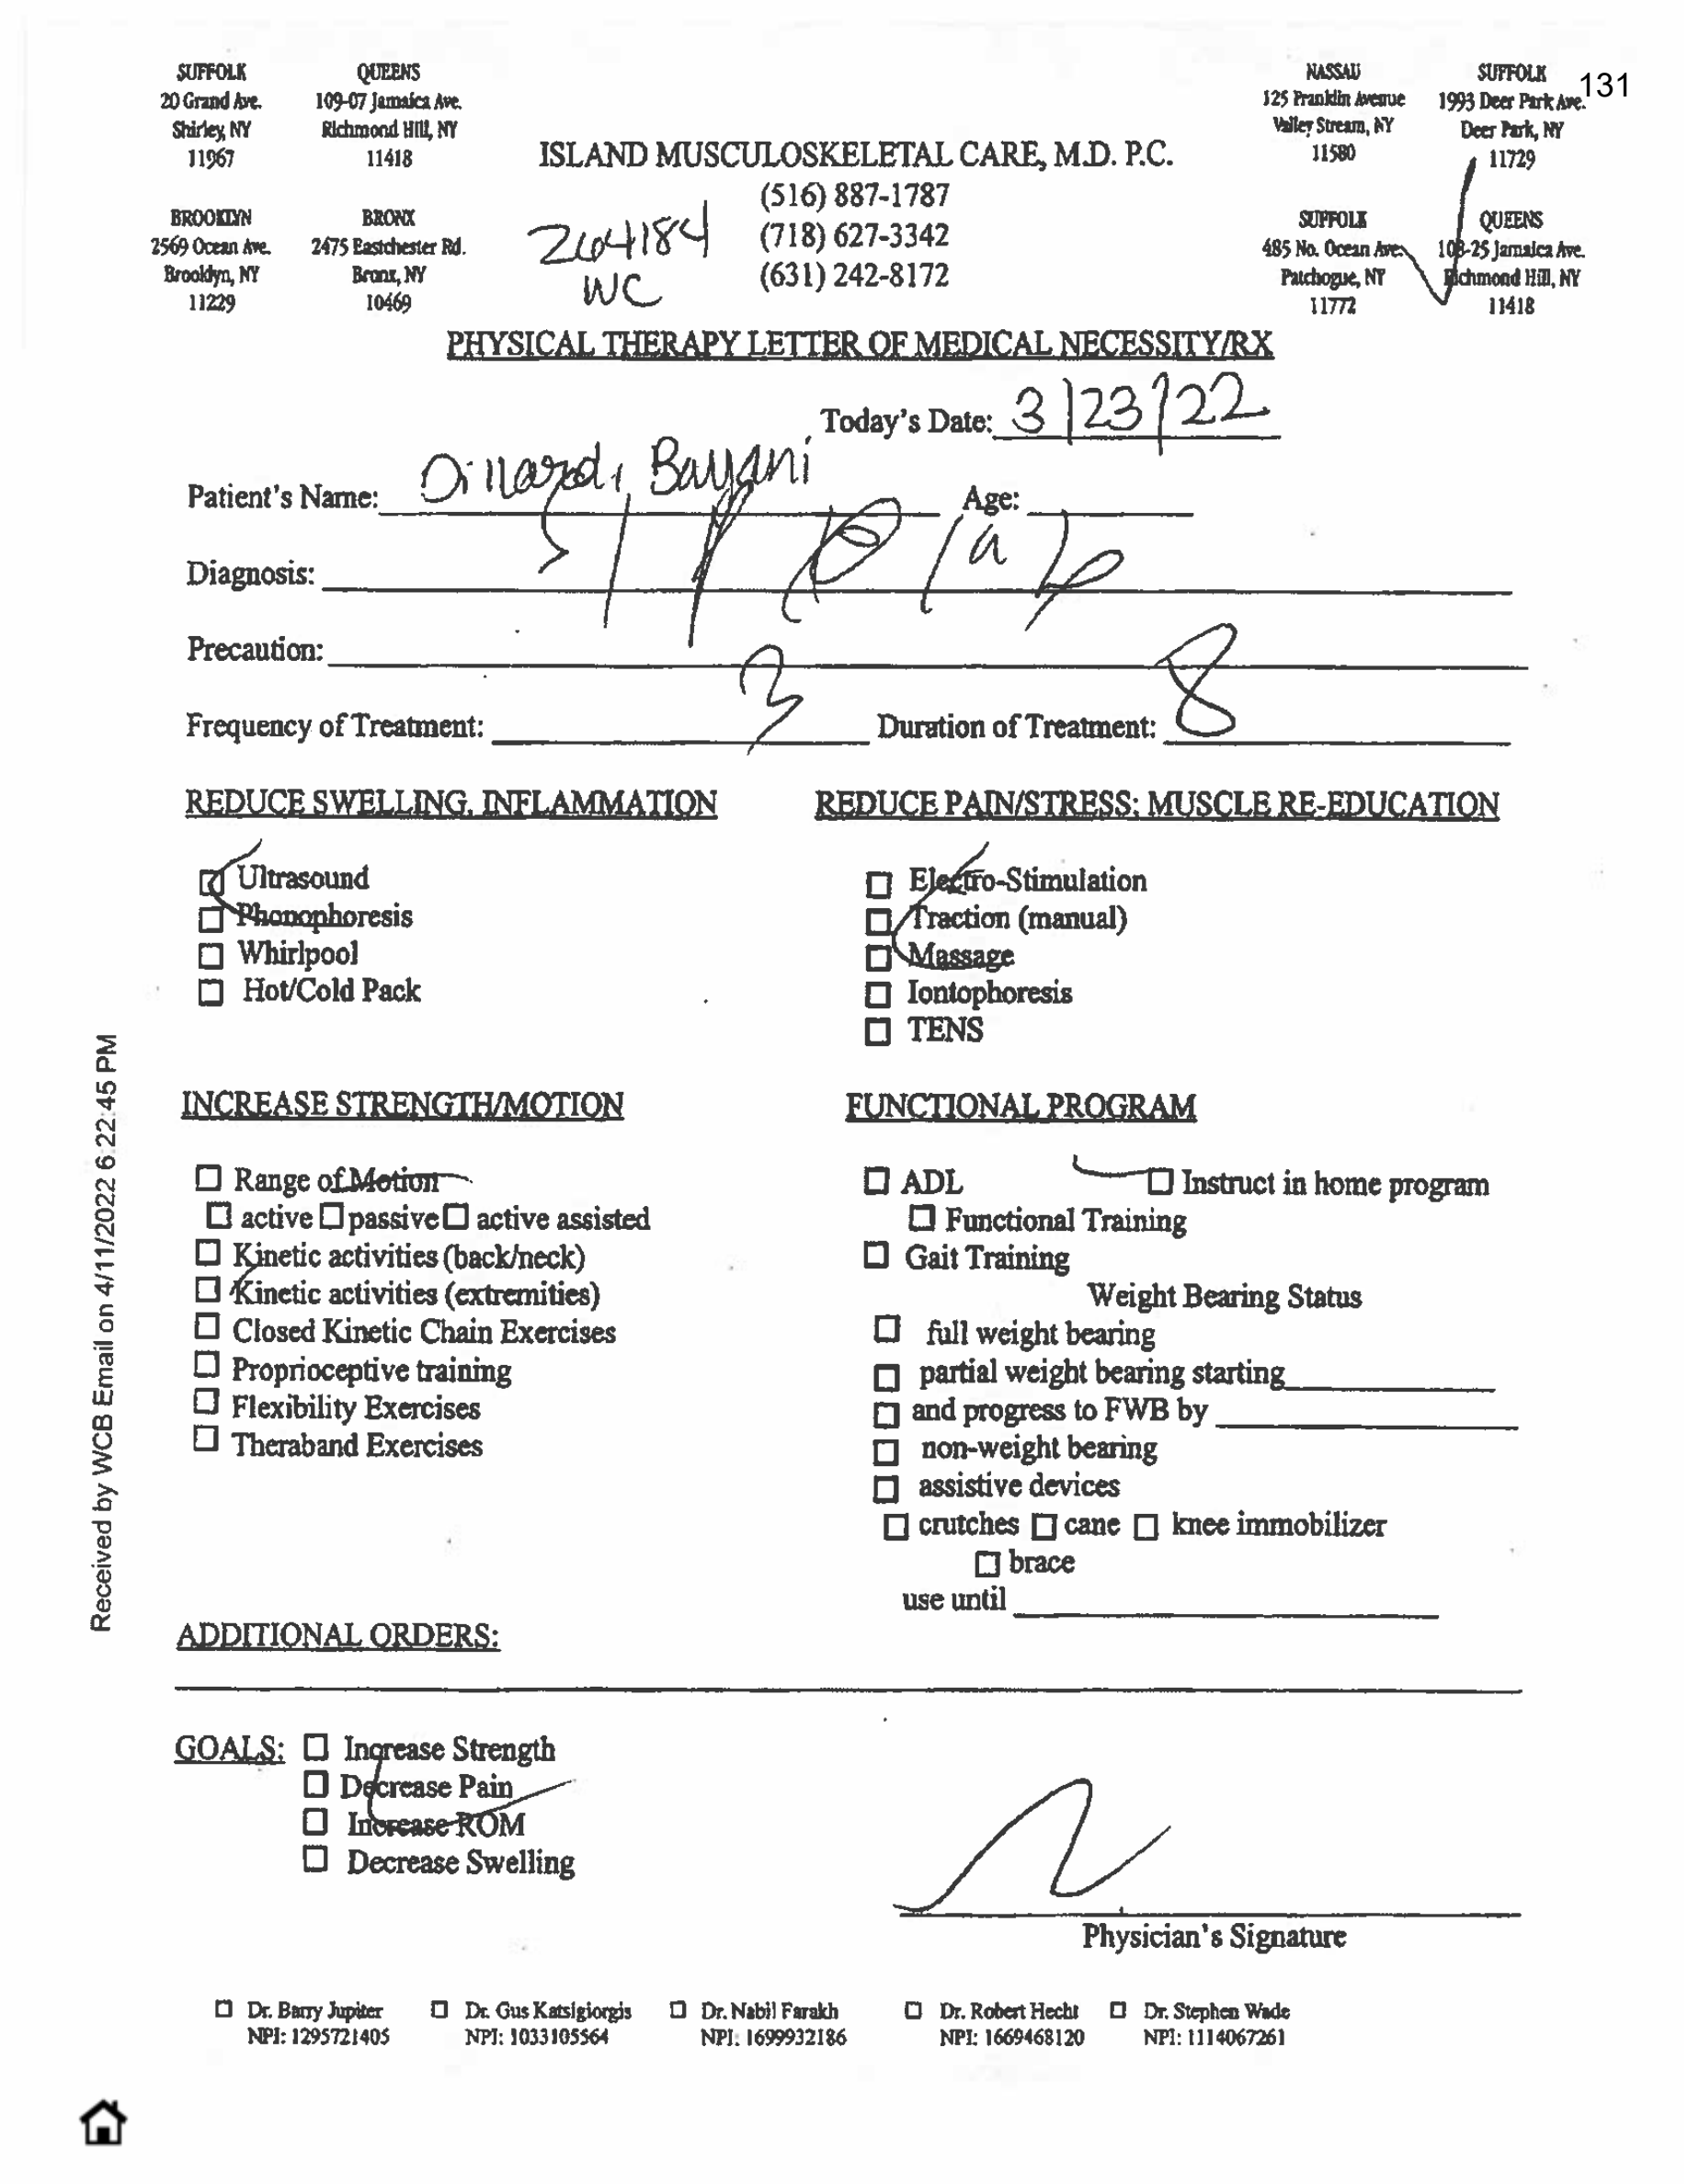 131
SUFFOLK
20 Grand Ave.
Shirley, NY
11967
QUEENS
109-07 Jamaica Ave.
Richmond Hill, NY
11418
NASSAU
125 Franklin Avenue
Valley Stream, NY
11580
SUFFOLK
1993 Deer Park Ave.
Deer Park, NY
11729
ISLAND MUSCULOSKELETAL CARE, M.D. P.C.
(516) 887-1787
(718) 627-3342
(631) 242-8172
BROOKLYN
2569 Ocean Ave.
Brooklyn, NY
11229
BRONX
2475 Eastchester Rd.
Bronx, NY
10469
264184
WC
SUFFOLK
485 No. Ocean Ave.
Patchogue, NY
11772
QUEENS
108-25 Jamaica Ave.
Richmond Hill, NY
11418
PHYSICAL THERAPY LETTER OF MEDICAL NECESSITY/RX
Today's Date: 3/23/22
Patient's Name: Dillard, Bayani Age:
Diagnosis:
Precaution:
Frequency of Treatment: 3 Duration of Treatment: 8
REDUCE SWELLING, INFLAMMATION
Ultrasound
Phonophoresis
Whirlpool
Hot/Cold Pack
REDUCE PAIN/STRESS; MUSCLE RE-EDUCATION
Electro-Stimulation
Traction (manual)
Massage
Iontophoresis
TENS
INCREASE STRENGTH/MOTION
Range of Motion
active passive active assisted
Kinetic activities (back/neck)
Kinetic activities (extremities)
Closed Kinetic Chain Exercises
Proprioceptive training
Flexibility Exercises
Theraband Exercises
FUNCTIONAL PROGRAM
ADL Instruct in home program
Functional Training
Gait Training
Weight Bearing Status
full weight bearing
partial weight bearing starting
and progress to FWB by
non-weight bearing
assistive devices
crutches cane knee immobilizer
brace
use until
ADDITIONAL ORDERS:
GOALS: Increase Strength
Decrease Pain
Increase ROM
Decrease Swelling
Physician's Signature
Dr. Barry Jupiter
NPI: 1295721405
Dr. Gus Katsigiorgis
NPI: 1033105564
Dr. Nabil Farakh
NPI: 1699932186
Dr. Robert Hecht
NPI: 1669468120
Dr. Stephen Wade
NPI: 1114067261
Received by WCB Email on 4/11/2022 6:22:45 PM